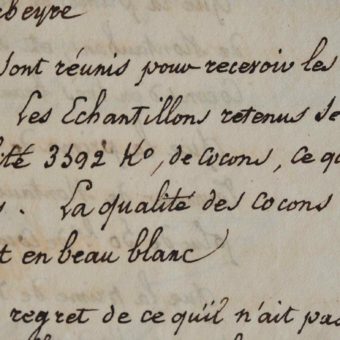 beyre
sont réunis pour recevoir les
Les Echantillons retenus se
ité 3592 Ko, de cocons, ce qu
s. La qualité des cocons
t en beau blanc
regret de ce qu'il n'ait pas